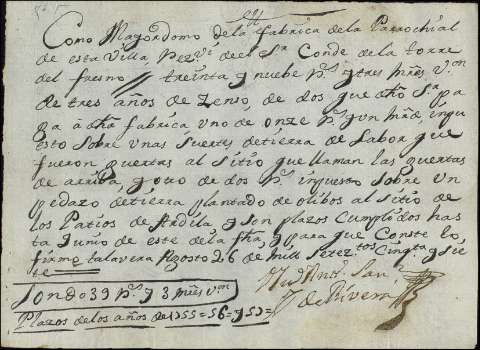 Como Mayordomo de la fabrica de la Parrochial
de esta Villa, Rezví. del Sr. Conde de la torre
del fresno // treinta y nuebe Rs. y tres mrs. von.
de tres años de Zenso, de dos que dho Sr. pa
ga â dha fabrica uno de onze Rs. y un mrd. inpu
esto sobre unas suertes de tierra de Labor que
fueron guertas al sitio que llaman las guertas
de arriba, y otro de dos Rs. inpuesto sobre un
pedazo de tierra plantado de olibos al sitio de
los Patios de Ardila y son plazos Cumplidos has
ta Junio de este de la fha, y para que Conste lo
firmo talavera Agosto 26 de mill Setez.tos Cinqta. y sie
te
Son do 39 Rs. y 3 mrs. von.
Plazos de los años de 1755 = 56 = y 57 =
Antt. San
de Rivera